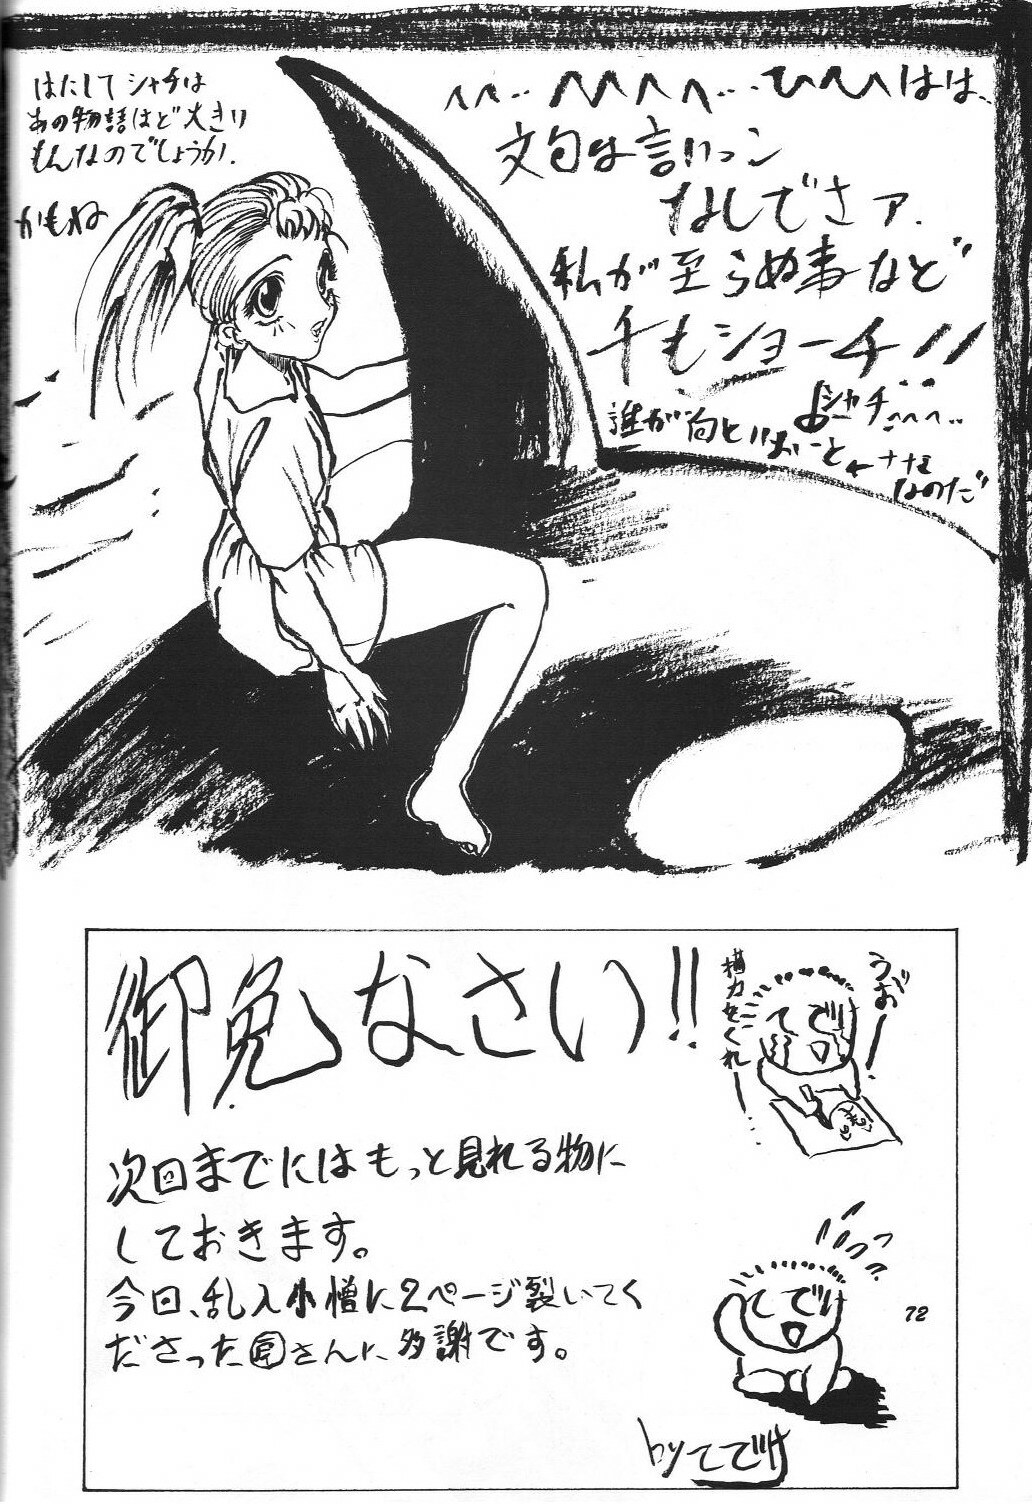 はたしてシャチは
あの物語ほど大きい
もんなのでしょうか.
かもね
へへ‥ へへへへ…ひひひはは‥
文句は言いっこ
なしでさァ.
私が至らぬ事など
千もショーチ!!
シャチへへへ‥
誰が何といおーと
なのだ
御免なさい!!
うおー
力をくれー
次回までにはもっと見れる物に
しておきます。
今回、乱入小僧に2ページ裂いてく
ださった さんに多謝です。
72
byてでけ